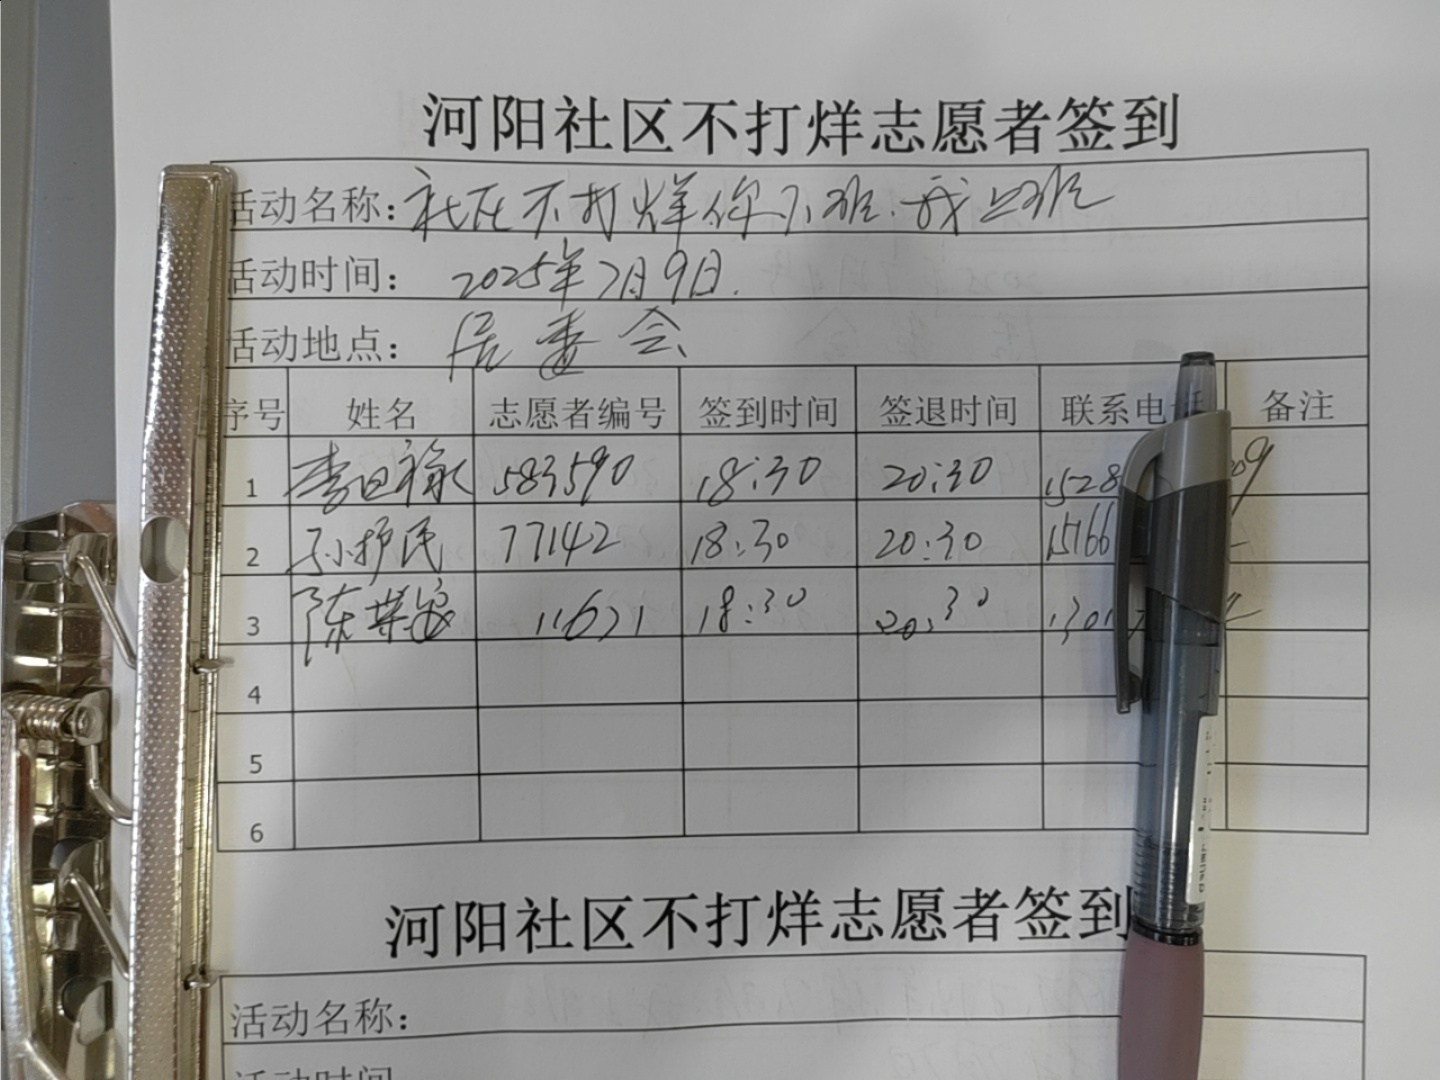 河阳社区不打烊志愿者签到
活动名称: 社区不打烊你下班.我上班
活动时间: 2025年7月9日.
活动地点: 居委会
序号 姓名 志愿者编号 签到时间 签退时间 联系电 备注
1 583590 18:30 20:30 1528 09
2 孙护民 77142 18:30 20:30 15166
3 陈 11671 18:30 20:30 1301
4
5
6
河阳社区不打烊志愿者签到
活动名称:
活动时间